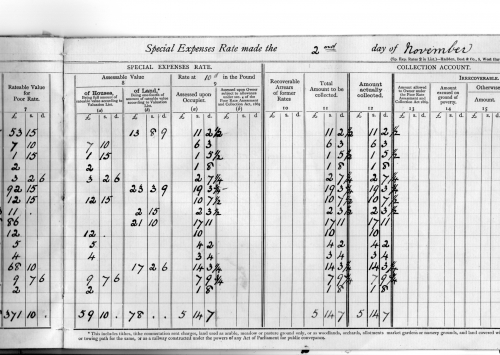 Special Expenses Rate made the 2nd day of November
SPECIAL EXPENSES RATE.
COLLECTION ACCOUNT.
Rateable Value for Poor Rate.
Assessable Value
Rate at 10d in the Pound
of Houses,
of Land,*
Assessed upon Occupier.
Recoverable Arrears of former Rates
Total Amount to be collected.
Amount actually collected.
IRRECOVERABLE.
Amount excused on ground of poverty.
Otherwise
7 8 9 10 11 12 13 14 15
53 15 13 8 9 11 2½ 11 2½ 11 2½
7 10 7 10 6 3 6 3 6 3
1 15 1 15 1 5½ 1 5½ 1 5½
2 2 1 8 1 8 1 8
3 2 6 3 2 6 2 7¼ 2 7¼ 2 7¼
92 15 23 3 9 19 3¾ 19 3¾ 19 3¾
12 15 12 15 10 7½ 10 7½ 10 7½
11 2 15 2 3½ 2 3½ 2 3½
86 21 10 17 11 17 11 17 11
12 12 10 10 10
5 5 4 2 4 2 4 2
4 4 3 4 3 4 3 4
68 10 17 2 6 14 3¼ 14 3¼ 14 3¼
9 7 6 9 7 6 7 9¾ 7 9¾ 7 9¾
2 2 1 8 1 8 1 8
371 10 59 10 78 5 14 7 5 14 7 5 14 7
* This includes tithes, tithe commutation rent charges, land used as arable, meadow or pasture ground only, or as woodlands, orchards, allotments market gardens or nursery grounds, and land covered with
or towing path for the same, or as a railway constructed under the powers of any Act of Parliament for public conveyance.